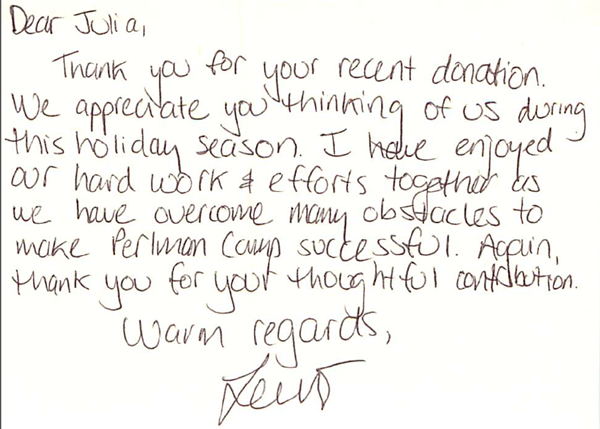 Dear Julia,
Thank you for your recent donation.
We appreciate you thinking of us during
this holiday season. I have enjoyed
our hard work & efforts together as
we have overcome many obstacles to
make Perlman Camp successful. Again,
thank you for your thoughtful contribution.
Warm regards,